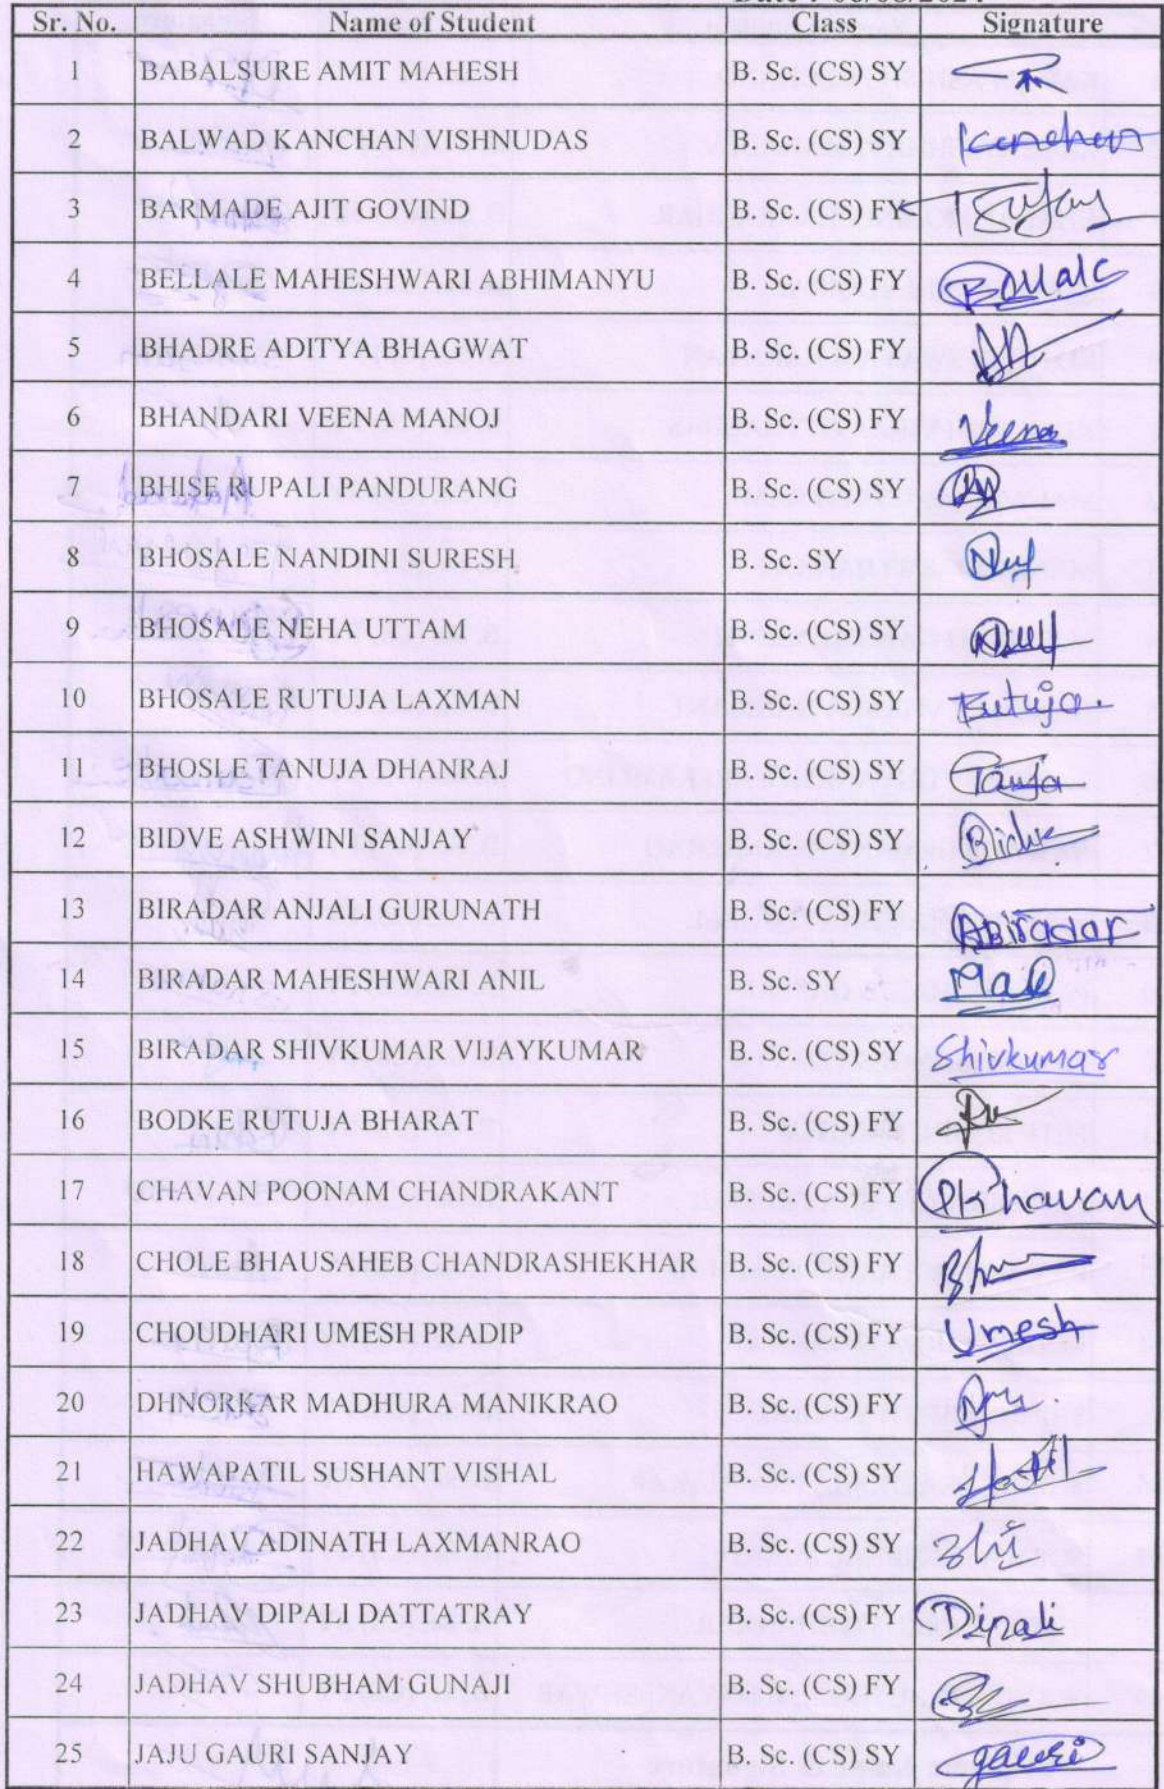 Sr. No. Name of Student Class Signature
1 BABALSURE AMIT MAHESH B. Sc. (CS) SY
2 BALWAD KANCHAN VISHNUDAS B. Sc. (CS) SY Kanchan
3 BARMADE AJIT GOVIND B. Sc. (CS) FY
4 BELLALE MAHESHWARI ABHIMANYU B. Sc. (CS) FY Bellale
5 BHADRE ADITYA BHAGWAT B. Sc. (CS) FY
6 BHANDARI VEENA MANOJ B. Sc. (CS) FY Veena
7 BHISE RUPALI PANDURANG B. Sc. (CS) SY
8 BHOSALE NANDINI SURESH B. Sc. SY
9 BHOSALE NEHA UTTAM B. Sc. (CS) SY
10 BHOSALE RUTUJA LAXMAN B. Sc. (CS) SY Rutuja.
11 BHOSLE TANUJA DHANRAJ B. Sc. (CS) SY
12 BIDVE ASHWINI SANJAY B. Sc. (CS) SY Bidve
13 BIRADAR ANJALI GURUNATH B. Sc. (CS) FY ABiradar
14 BIRADAR MAHESHWARI ANIL B. Sc. SY
15 BIRADAR SHIVKUMAR VIJAYKUMAR B. Sc. (CS) SY Shivkumar
16 BODKE RUTUJA BHARAT B. Sc. (CS) FY
17 CHAVAN POONAM CHANDRAKANT B. Sc. (CS) FY
18 CHOLE BHAUSAHEB CHANDRASHEKHAR B. Sc. (CS) FY
19 CHOUDHARI UMESH PRADIP B. Sc. (CS) FY Umesh
20 DHNORKAR MADHURA MANIKRAO B. Sc. (CS) FY
21 HAWAPATIL SUSHANT VISHAL B. Sc. (CS) SY
22 JADHAV ADINATH LAXMANRAO B. Sc. (CS) SY
23 JADHAV DIPALI DATTATRAY B. Sc. (CS) FY Dipali
24 JADHAV SHUBHAM GUNAJI B. Sc. (CS) FY
25 JAJU GAURI SANJAY B. Sc. (CS) SY gauri